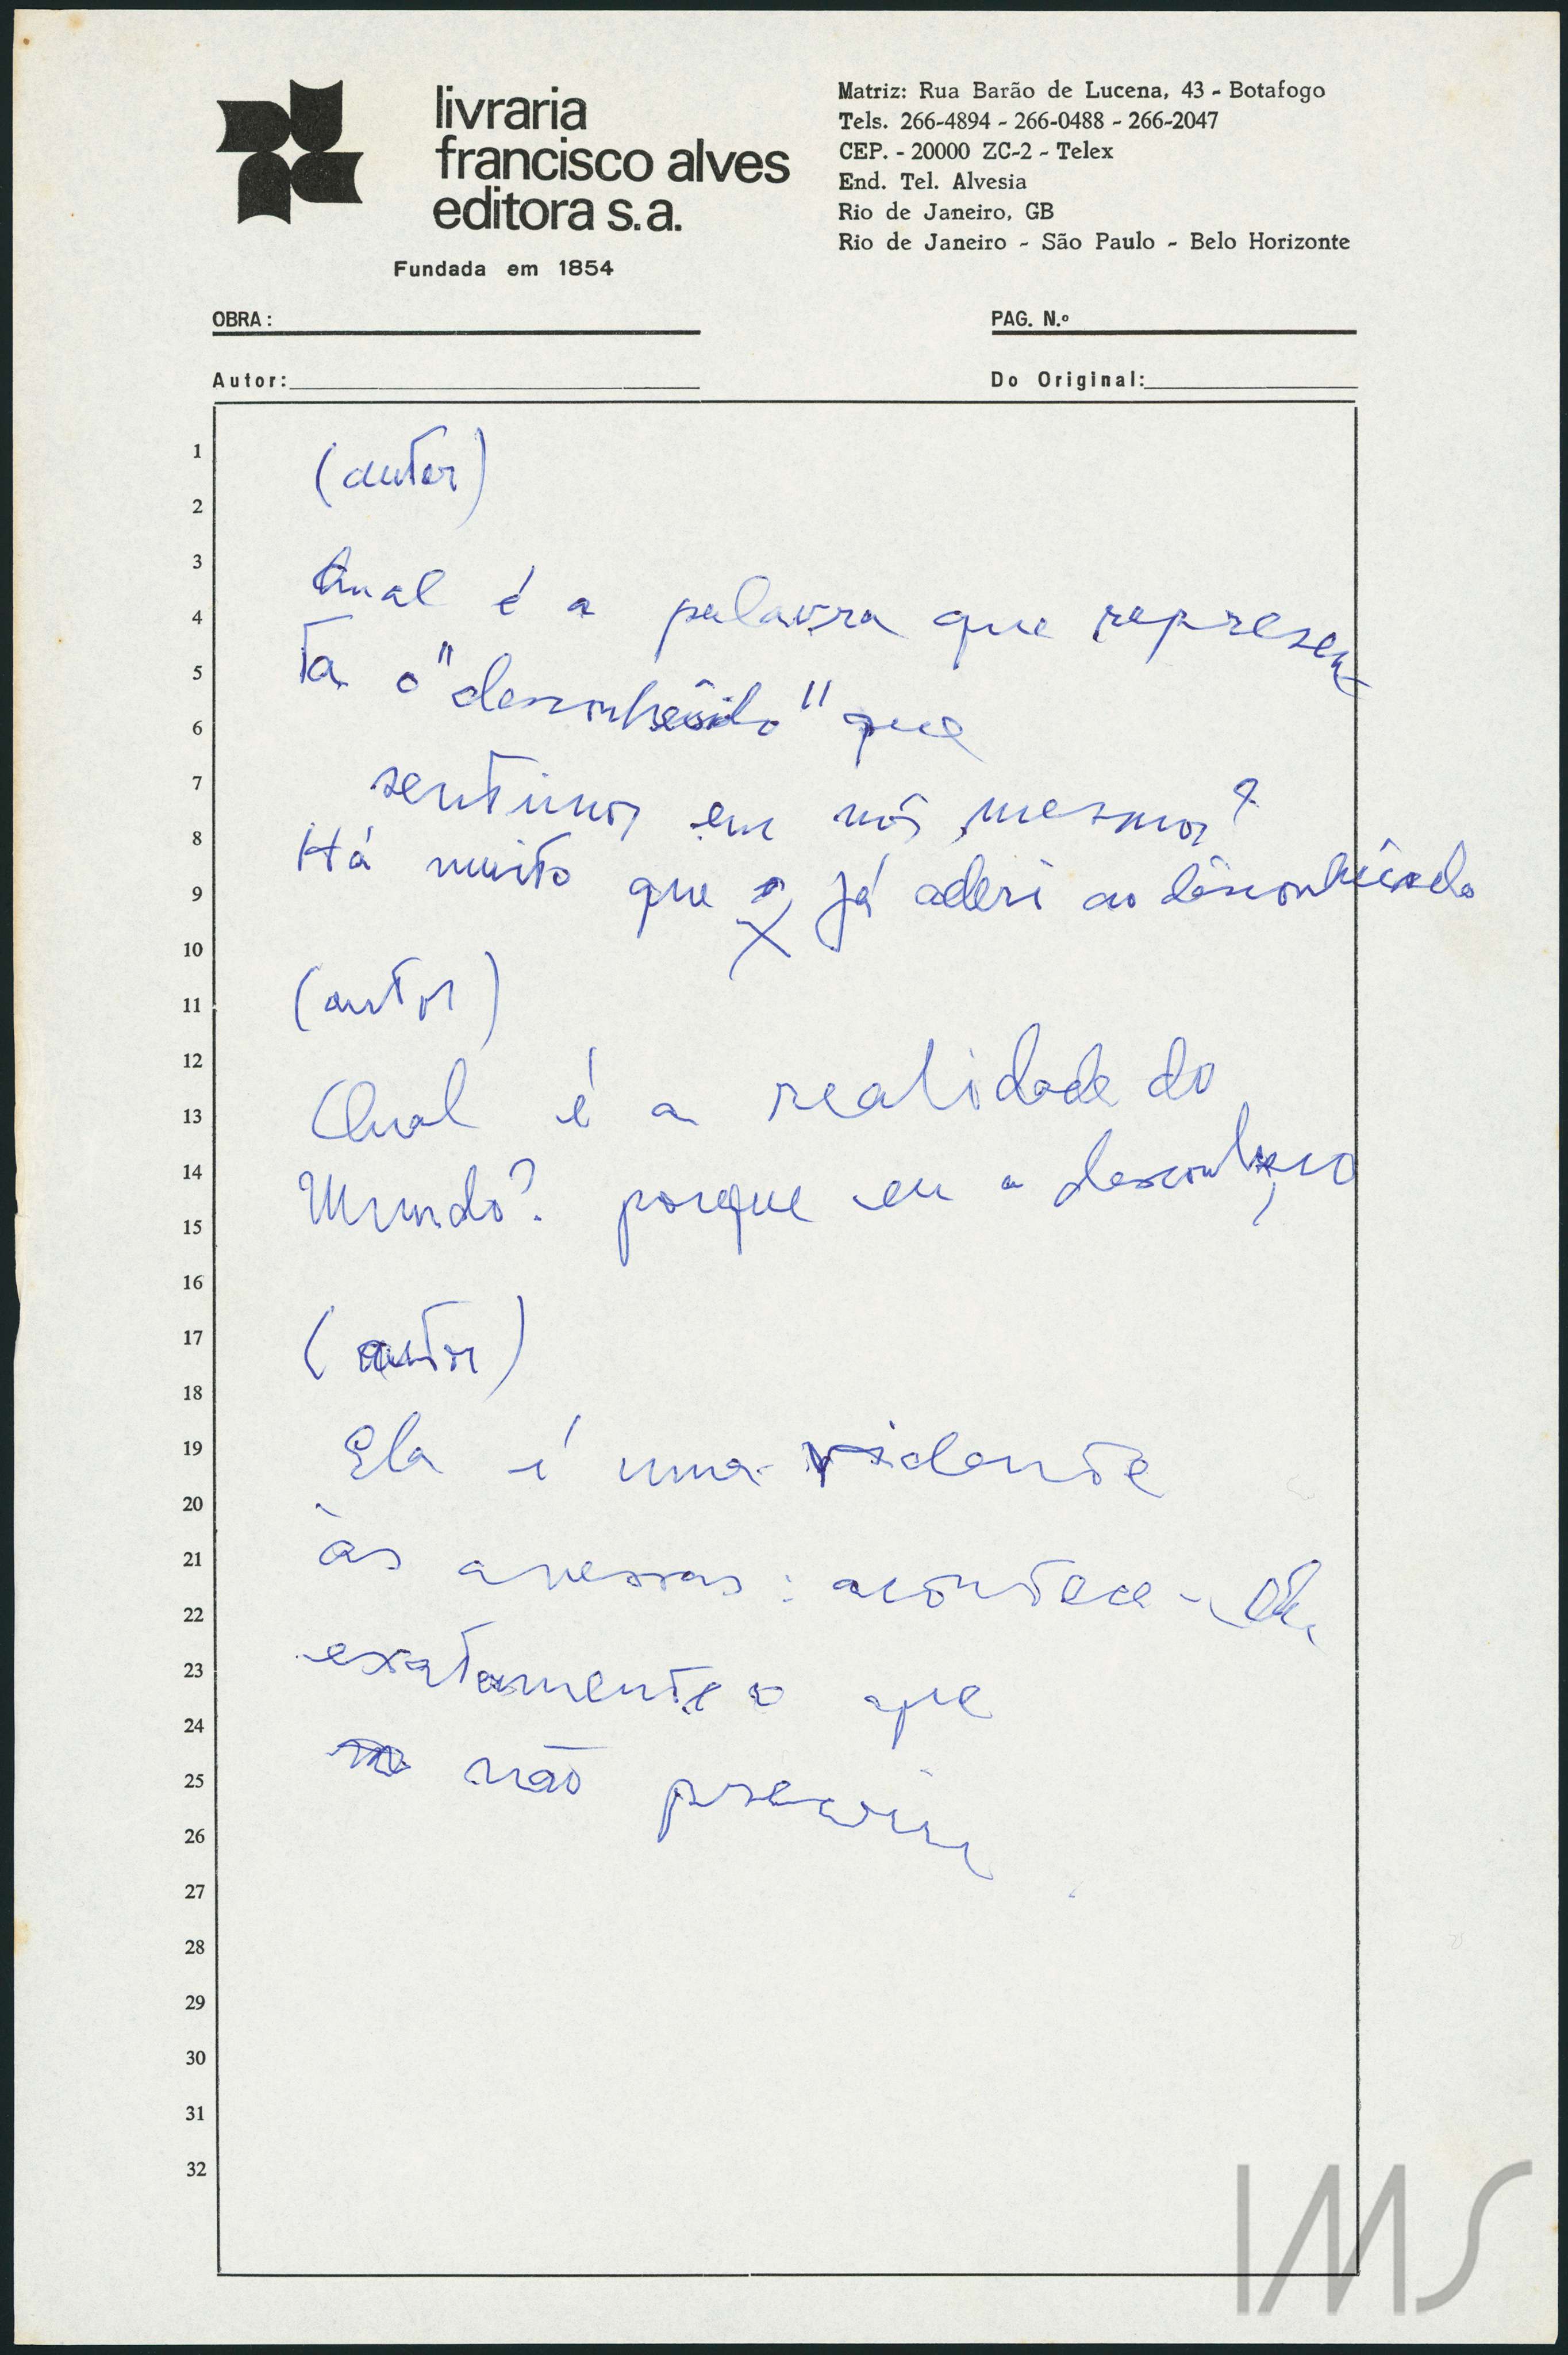 livraria
francisco alves
editora s.a.
Fundada em 1854
Matriz: Rua Barão de Lucena, 43 - Botafogo
Tels. 266-4894 - 266-0488 - 266-2047
CEP. - 20000 ZC-2 - Telex
End. Tel. Alvesia
Rio de Janeiro, GB
Rio de Janeiro - São Paulo - Belo Horizonte
OBRA:
PAG. N.º
Autor:
Do Original:
1
2
3
4
5
6
7
8
9
10
11
12
13
14
15
16
17
18
19
20
21
22
23
24
25
26
27
28
29
30
31
32
(autor)
Qual é a palavra que represen
ta o "desconhecido" que
sentimos em nós mesmos?
Há muito que já aderi ao desconhecido
(autor)
Qual é a realidade do
Mundo? porque eu a desconheço
(autor)
Ela é uma vidente
às avessas: acontece-lhe
exatamente o que
não previu
IMS